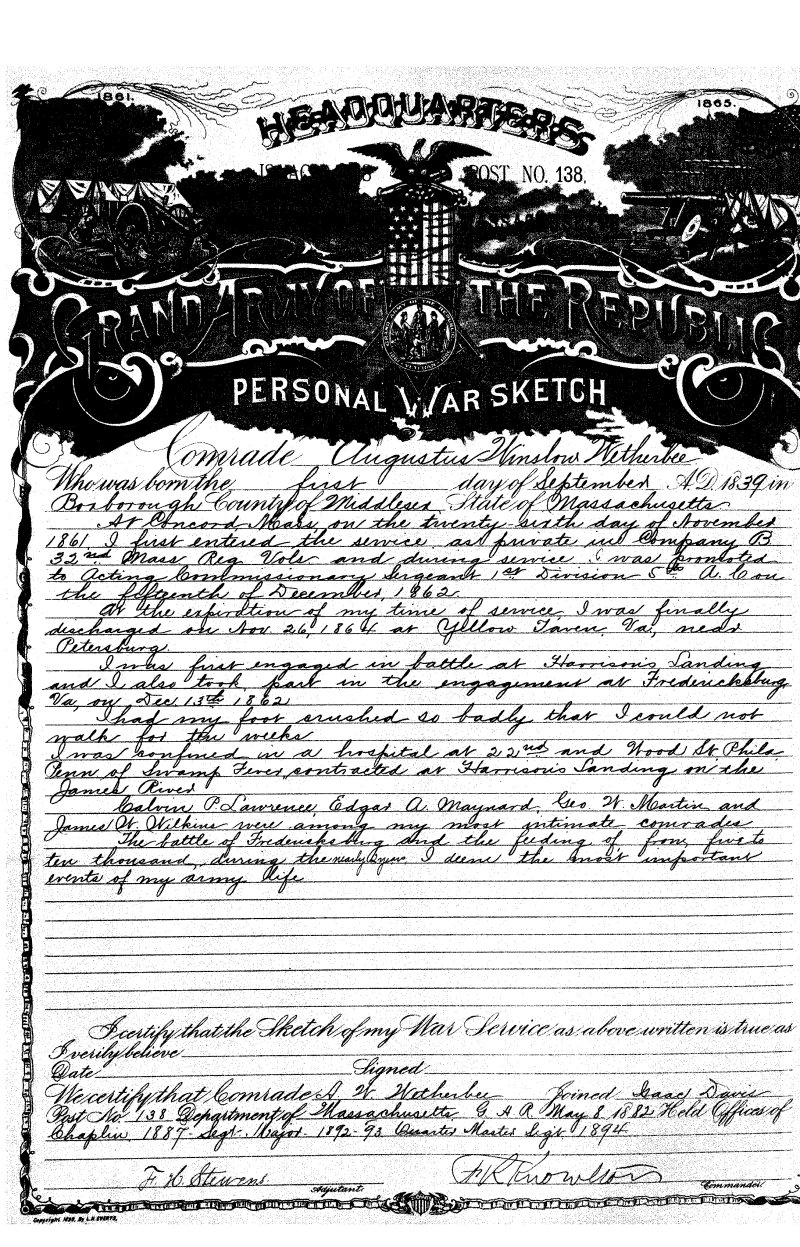 1861.
1865.
HEADQUARTERS
POST NO. 138,
GRAND ARMY OF THE REPUBLIC
PERSONAL WAR SKETCH
Comrade Augustus Winslow Wetherbee
Who was born the first day of September A.D. 1839 in
Boxborough County of Middlesex State of Massachusetts
At Concord Mass, on the twenty-sixth day of November
1861 I first entered the service, as private in Company B
32nd Mass Reg Vols and during service I was promoted
to Acting Commissionary Sergeant 1st Division 5th A.C on
the fifteenth of December, 1862.
At the expiration of my time of service, I was finally
discharged on Nov. 26, 1864 at Yellow Taven, Va., near
Petersburg.
I was first engaged in battle at Harrison's Landing
and I also took part in the engagement at Fredericksburg
Va, on Dec. 13th 1862
I had my foot crushed so badly that I could not
walk for ten weeks
I was confined in a hospital at 22nd and Wood St Phila
Penn of Swamp Fever, contracted at Harrison's Landing on the
James River
Calvin P. Lawrence, Edgar A. Maynard, Geo. W. Martin and
James W. Wilkins were among my most intimate comrades
The battle of Fredericksburg and the feeding of from five to
ten thousand, during the nearly 3 years I deem the most important
events of my army life
I certify that the Sketch of my War Service as above written is true as
I verily believe
Date Signed
We certify that Comrade A. W. Wetherbee Joined Isaac Davis
Post No. 138 Department of Massachusetts G A R May 8, 1882 Held Offices of
Chaplin 1887- Segt. Major. 1892-93 Quarter Master Segt 1894
F. H. Stevens F K Knowlton
Adjutant. Commander.
Copyright 1890, By L.H. EVERTS,